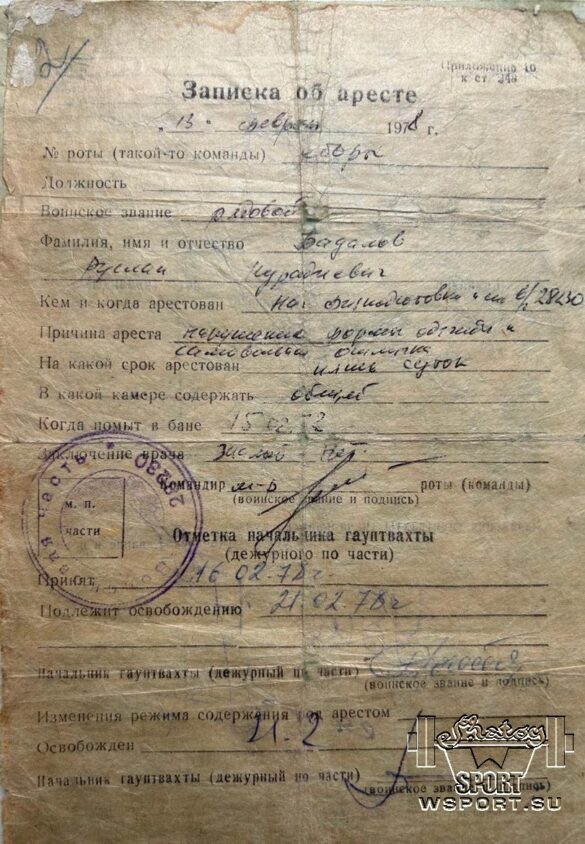 24
Приложение 16
к ст. 248
Записка об аресте
„13“ февраля 1978 г.
№ роты (такой-то команды) сборы
Должность
Воинское звание рядовой
Фамилия, имя и отчество Бадалов
Руслан
Кем и когда арестован Нач. физподготовки в/ч 28230
Причина ареста нарушение формы одежды и
самовольная отлучка
На какой срок арестован пять суток
В какой камере содержать общей
Когда помыт в бане 15.02.78
Заключение врача
Командир м-р роты (команды)
(воинское звание и подпись)
м. п.
части
28230
часть
Отметка начальника гауптвахты
(дежурного по части)
Принят 16.02.78г
Подлежит освобождению 21.02.78г
Начальник гауптвахты (дежурный по части)
(воинское звание и подпись)
Изменения режима содержания под арестом
Освобожден 21-2
Начальник гауптвахты (дежурный по части)
(воинское звание и подпись)
SPORT
WSPORT.SU